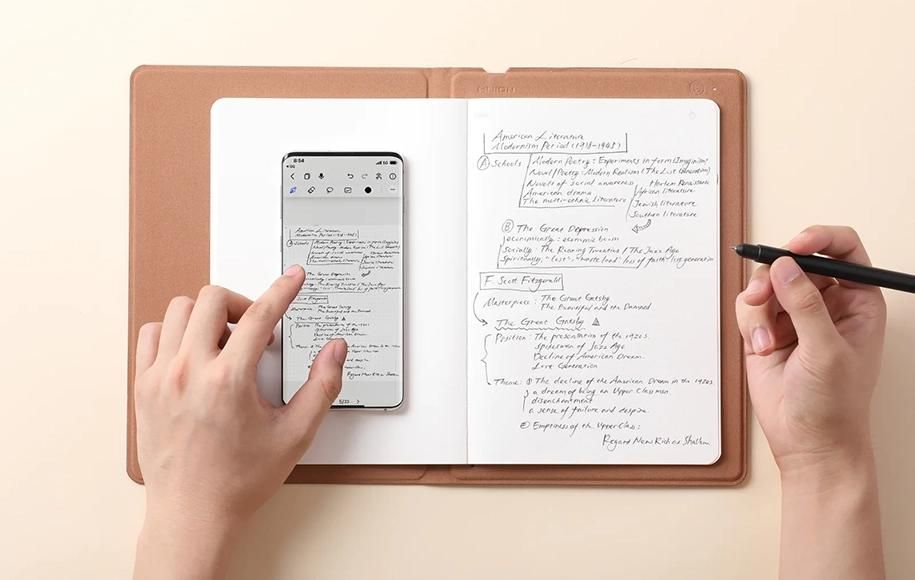 HUION
American Literature
Modernism Period (1918-1945)
Ⓐ Schools
Modern Poetry: Experiments in form (Imaginism)
Novel/Poetry: Modern Realism (The Lost Generation)
Novels of social awareness
Harlem Renaissance
American drama
African literature
The multi-ethnic literature
Jewish literature
Southern literature
Ⓑ The Great Depression
economically: economic boom
socially: The Roaring Twenties / The Jazz Age
Spiritously: "lost", "waste land" loss of faith
generation
F. Scott Fitzgerald
Masterpiece: The Great Gatsby
The Beautiful and the Damned
The Great Gatsby
Position: The presentation of the 1920s.
spokesman of Jazz Age
Decline of American Dream.
Lost Generation
Theme: ① The decline of the American Dream in the 1920s.
a dream of being an Upper Class man.
disenchantment
a sense of failure and despire.
② Emptiness of the Upper Class:
Regard New Rich as Shallow
8:54
5G